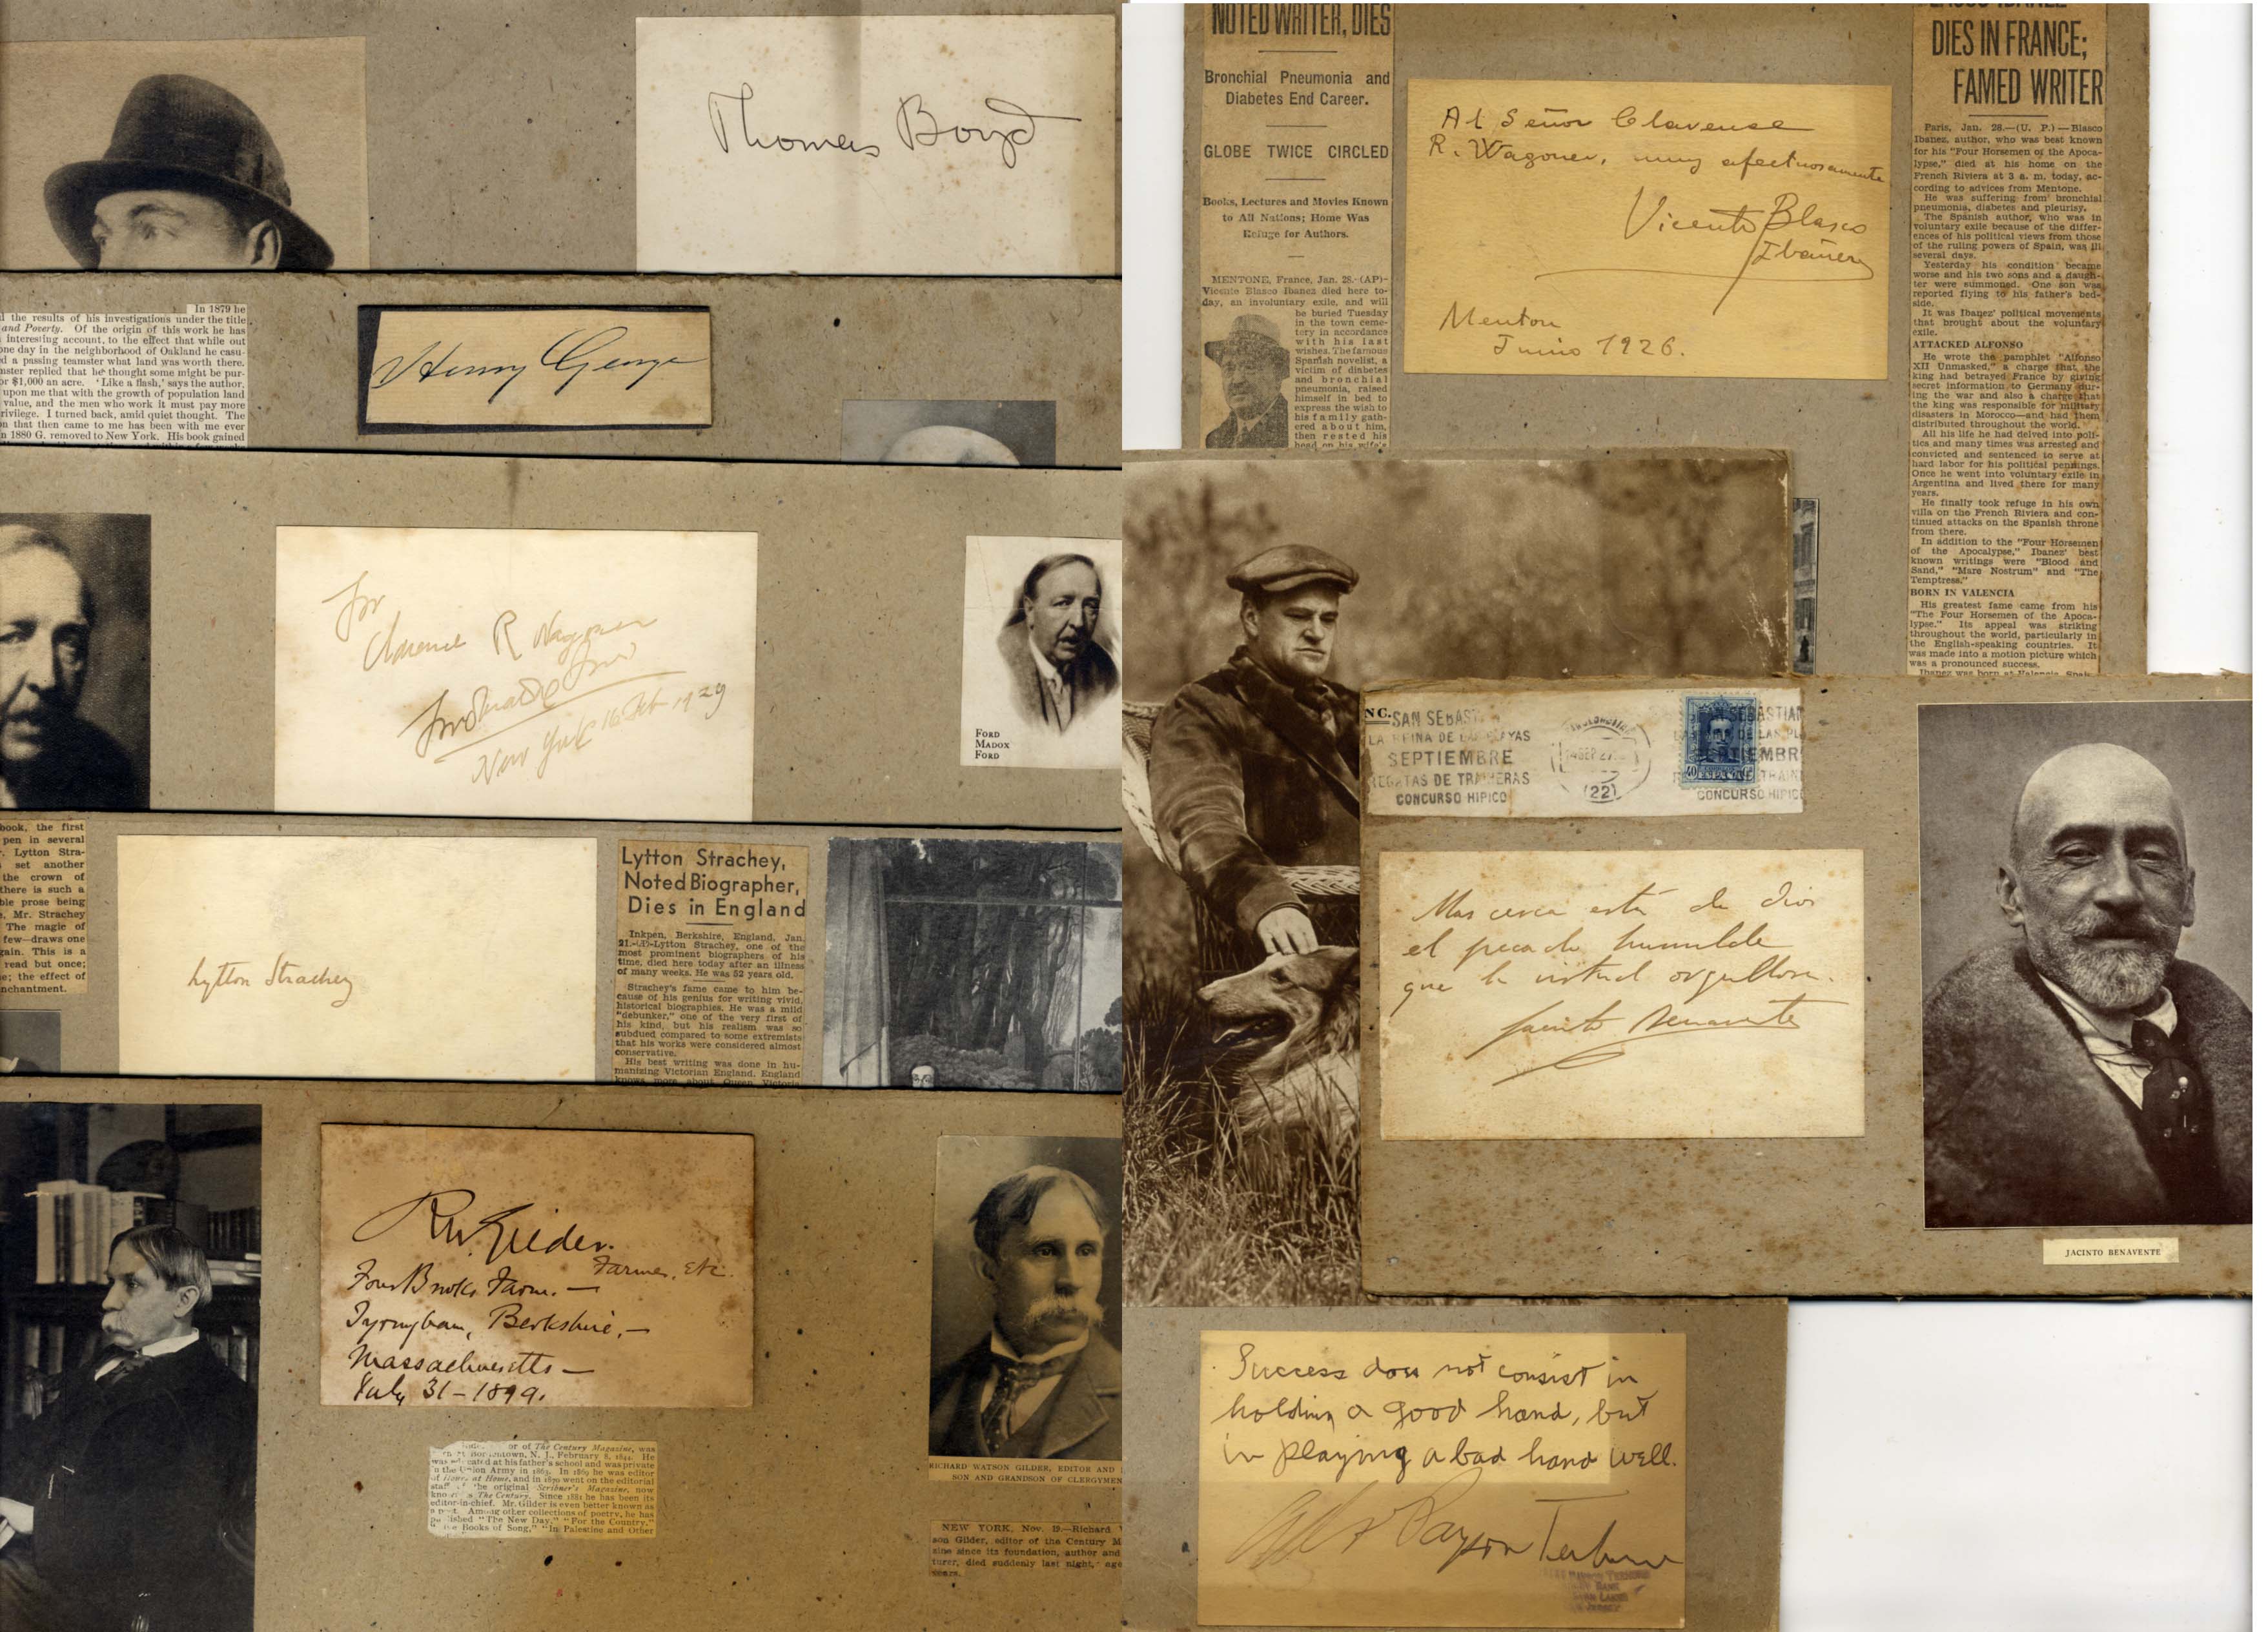 Thomas Boyd
In 1879 he
the results of his investigations under the title
and Poverty. Of the origin of this work he has
interesting account, to the effect that while out
one day in the neighborhood of Oakland he casu-
d a passing teamster what land was worth there.
mster replied that he thought some might be pur-
or $1,000 an acre. 'Like a flash,' says the author,
upon me that with the growth of population land
value, and the men who work it must pay more
rivilege. I turned back, amid quiet thought. The
n that then came to me has been with me ever
n 1880 G. removed to New York. His book gained
Henry George
for
Clarence R Wagoner
Ford
New York 16 Feb. 1929
FORD
MADOX
FORD
book, the first
pen in several
Lytton Stra-
set another
the crown of
there is such a
ble prose being
Mr. Strachey
The magic of
few—draws one
gain. This is a
read but once;
e; the effect of
nchantment.
Lytton Strachey
Lytton Strachey,
Noted Biographer,
Dies in England
Inkpen, Berkshire, England, Jan.
21.-(AP)-Lytton Strachey, one of the
most prominent biographers of his
time, died here today after an illness
of many weeks. He was 52 years old.
Strachey's fame came to him be-
cause of his genius for writing vivid,
historical biographies. He was a mild
"debunker," one of the very first of
his kind, but his realism was so
subdued compared to some extremists
that his works were considered almost
conservative.
His best writing was done in hu-
manizing Victorian England. England
knows more about Queen Victoria
R W Gilder.
Farmer, Etc
Four Brooks Farm.—
Tyringham, Berkshire,—
Massachusetts—
July 31-1899.
or of The Century Magazine, was
Bordentown, N. J., February 8, 1844. He
was educated at his father's school and was private
in the Union Army in 1863. In 1869 he was editor
of Hours at Home, and in 1870 went on the editorial
staff of the original Scribner's Magazine, now
The Century. Since 1881 he has been its
editor-in-chief. Mr. Gilder is even better known as
a poet. Among other collections of poetry, he has
published "The New Day," "For the Country,"
Books of Song," "In Palestine and Other
RICHARD WATSON GILDER, EDITOR AND
SON AND GRANDSON OF CLERGYMEN
NEW YORK, Nov. 19.—Richard
son Gilder, editor of the Century M
zine since its foundation, author and
turer, died suddenly last night, age
years.
NOTED WRITER, DIES
Bronchial Pneumonia and
Diabetes End Career.
GLOBE TWICE CIRCLED
Books, Lectures and Movies Known
to All Nations; Home Was
Refuge for Authors.
MENTONE, France, Jan. 28.-(AP)-
Vicente Blasco Ibanez died here to-
day, an involuntary exile, and will
be buried Tuesday
in the town ceme-
tery in accordance
with his last
wishes. The famous
Spanish novelist, a
victim of diabetes
and bronchial
pneumonia, raised
himself in bed to
express the wish to
his family gath-
ered about him,
then rested his
head on his wife's
Al Señor Clarense
R. Wagoner, muy afectuosamente
Vicente Blasco
Ibañez
Menton
Junio 1926.
BLASCO IBANEZ
DIES IN FRANCE;
FAMED WRITER
Paris, Jan. 28.—(U. P.)—Blasco
Ibanez, author, who was best known
for his "Four Horsemen of the Apoca-
lypse," died at his home on the
French Riviera at 3 a. m. today, ac-
cording to advices from Mentone.
He was suffering from bronchial
pneumonia, diabetes and pleurisy.
The Spanish author, who was in
voluntary exile because of the differ-
ences of his political views from those
of the ruling powers of Spain, was ill
several days.
Yesterday his condition became
worse and his two sons and a daugh-
ter were summoned. One son was
reported flying to his father's bed-
side.
It was Ibanez' political movements
that brought about the voluntary
exile.
ATTACKED ALFONSO
He wrote the pamphlet "Alfonso
XII Unmasked," a charge that the
king had betrayed France by giving
secret information to Germany dur-
ing the war and also a charge that
the king was responsible for military
disasters in Morocco—and had them
distributed throughout the world.
All his life he had delved into poli-
tics and many times was arrested and
convicted and sentenced to serve at
hard labor for his political pennings.
Once he went into voluntary exile in
Argentina and lived there for many
years.
He finally took refuge in his own
villa on the French Riviera and con-
tinued attacks on the Spanish throne
from there.
In addition to the "Four Horsemen
of the Apocalypse," Ibanez' best
known writings were "Blood and
Sand," "Mare Nostrum" and "The
Temptress."
BORN IN VALENCIA
His greatest fame came from his
"The Four Horsemen of the Apoca-
lypse." Its appeal was striking
throughout the world, particularly in
the English-speaking countries. It
was made into a motion picture which
was a pronounced success.
Ibanez was born at Valencia, Spain
NC.
SAN SEBAST
LA REINA DE LAS PLAYAS
SEPTIEMBRE
REGATAS DE TRAINERAS
CONCURSO HIPICO
14 SEP 27
(22)
40
SAN SEBASTIAN
DE LAS PL
TIEMBR
TRAIN
CONCURSO HIPIC
Mas cerca está de Dios
el pecado humilde
que la virtud orgullosa.
Jacinto Benavente
JACINTO BENAVENTE
Success does not consist in
holding a good hand, but
in playing a bad hand well.
Albert Payson Terhune